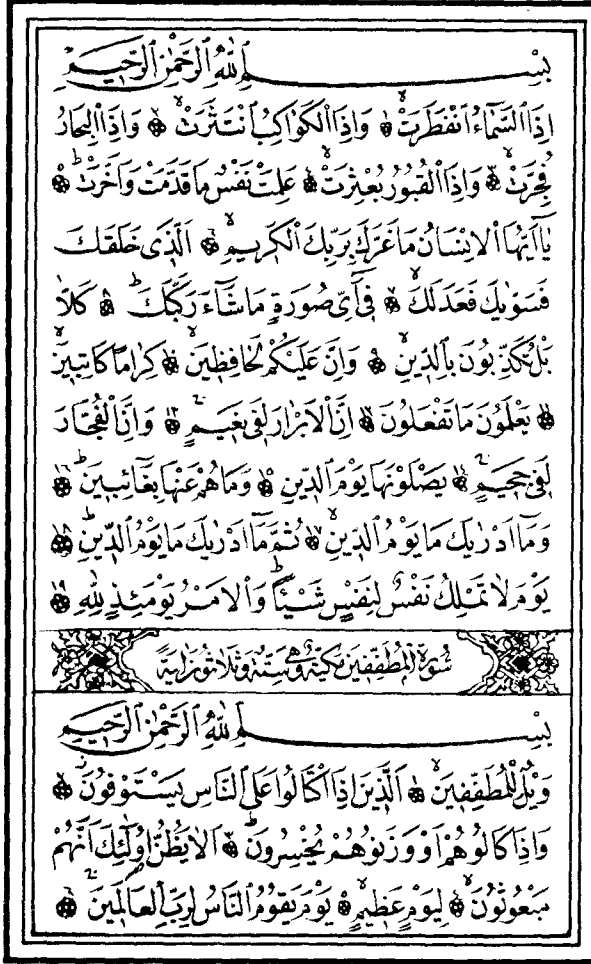 بِسْمِ اللّٰهِ الرَّحْمٰنِ الرَّحٖيمِ
اِذَا السَّمَٓاءُ انْفَطَرَتْۙ ﴿١﴾ وَاِذَا الْكَوَاكِبُ انْتَثَرَتْۙ ﴿٢﴾ وَاِذَا الْبِحَارُ
فُجِّرَتْۙ ﴿٣﴾ وَاِذَا الْقُبُورُ بُعْثِرَتْۙ ﴿٤﴾ عَلِمَتْ نَفْسٌ مَا قَدَّمَتْ وَاَخَّرَتْۜ ﴿٥﴾
يَٓا اَيُّهَا الْاِنْسَانُ مَا غَرَّكَ بِرَبِّكَ الْكَرٖيمِۙ ﴿٦﴾ اَلَّذٖى خَلَقَكَ
فَسَوّٰيكَ فَعَدَلَكَۙ ﴿٧﴾ فٖٓى اَىِّ صُورَةٍ مَا شَٓاءَ رَكَّبَكَۜ ﴿٨﴾ كَلَّا
بَلْ تُكَذِّبُونَ بِالدّٖينِۙ ﴿٩﴾ وَاِنَّ عَلَيْكُمْ لَحَافِظٖينَۙ ﴿١٠﴾ كِرَامًا كَاتِبٖينَۙ
﴿١١﴾ يَعْلَمُونَ مَا تَفْعَلُونَ ﴿١٢﴾ اِنَّ الْاَبْرَارَ لَفٖى نَعٖيمٍۚ ﴿١٣﴾ وَاِنَّ الْفُجَّارَ
لَفٖى جَحٖيمٍۚ ﴿١٤﴾ يَصْلَوْنَهَا يَوْمَ الدّٖينِ ﴿١٥﴾ وَمَا هُمْ عَنْهَا بِغَٓائِبٖينَۜ ﴿١٦﴾
وَمَٓا اَدْرٰيكَ مَا يَوْمُ الدّٖينِۙ ﴿١٧﴾ ثُمَّ مَٓا اَدْرٰيكَ مَا يَوْمُ الدّٖينِۜ ﴿١٨﴾
يَوْمَ لَا تَمْلِكُ نَفْسٌ لِنَفْسٍ شَيْـًٔاۜ وَالْاَمْرُ يَوْمَئِذٍ لِلّٰهِ ﴿١٩﴾
سُورَةُ الْمُطَفِّفٖينَ مَكِّيَّةٌ وَهِىَ سِتٌّ وَثَلَاثُونَ اٰيَةً
بِسْمِ اللّٰهِ الرَّحْمٰنِ الرَّحٖيمِ
وَيْلٌ لِلْمُطَفِّفٖينَۙ ﴿١﴾ اَلَّذٖينَ اِذَا اكْتَالُوا عَلَى النَّاسِ يَسْتَوْفُونَۘ ﴿٢﴾
وَاِذَا كَالُوهُمْ اَوْ وَزَنُوهُمْ يُخْسِرُونَۜ ﴿٣﴾ اَلَا يَظُنُّ اُو۬لٰٓئِكَ اَنَّهُمْ
مَبْعُوثُونَۙ ﴿٤﴾ لِيَوْمٍ عَظٖيمٍۙ ﴿٥﴾ يَوْمَ يَقُومُ النَّاسُ لِرَبِّ الْعَالَمٖينَۜ ﴿٦﴾